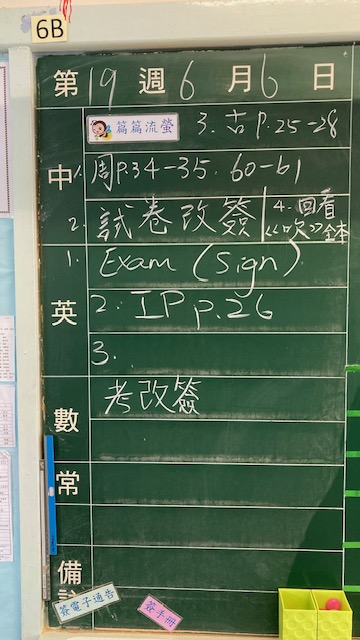 6B
第 19 週 6 月 6 日
篇篇流螢 3. 古 P.25-28
中 1. 周P.34-35. 60-61
2. 試卷改簽 4. 回看
《吹》全本
英 1. Exam (Sign)
2. IP p.26
3.
數 考改簽
常
備
簽電子通告
簽手冊